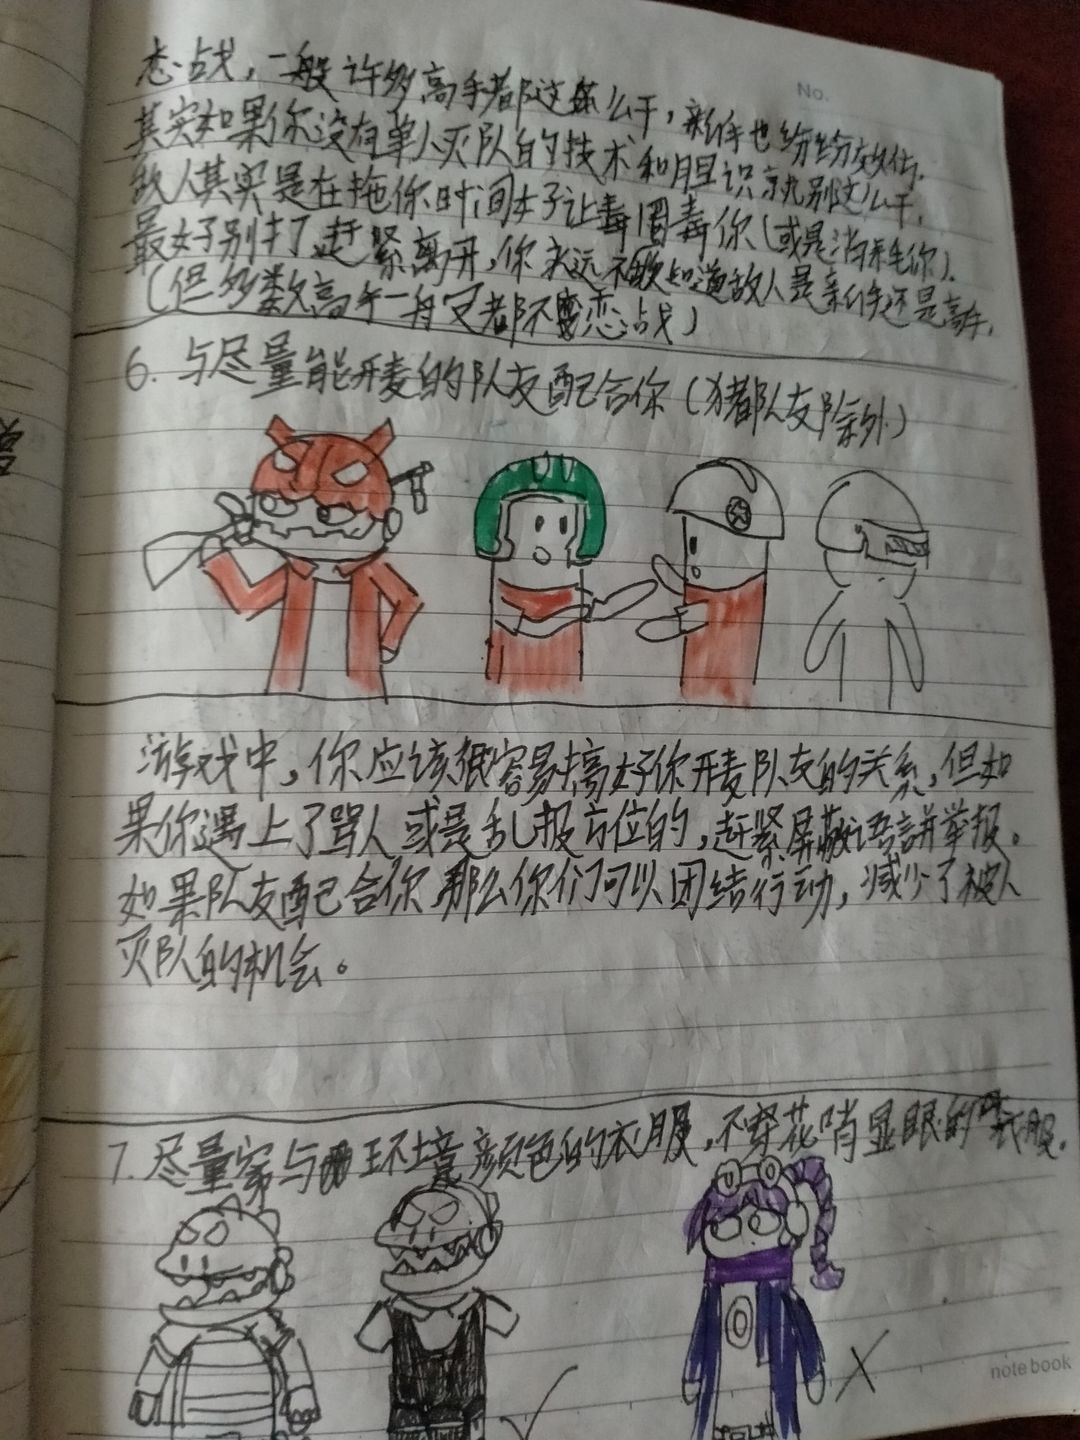 No.
恋战，一般许多高手都这么干，新手也纷纷效仿，
其实如果你没有单人灭队的技术和胆识就别这么干，
敌人其实是在拖你时间好让毒圈毒你(或是消耗你)．
最好别打，赶紧离开，你永远不知道敌人是新手还是高手，
(但多数高手一般都不恋战)
6. 与尽量能开麦的队友配合你(猪队友除外)
游戏中，你应该很容易搞好你开麦队友的关系，但如
果你遇上了骂人或是乱报方位的，赶紧屏蔽语音并举报。
如果队友配合你，那么你们可以团结行动，减少了被人
灭队的机会。
7. 尽量穿与环境颜色的衣服，不穿花哨显眼的衣服．
notebook